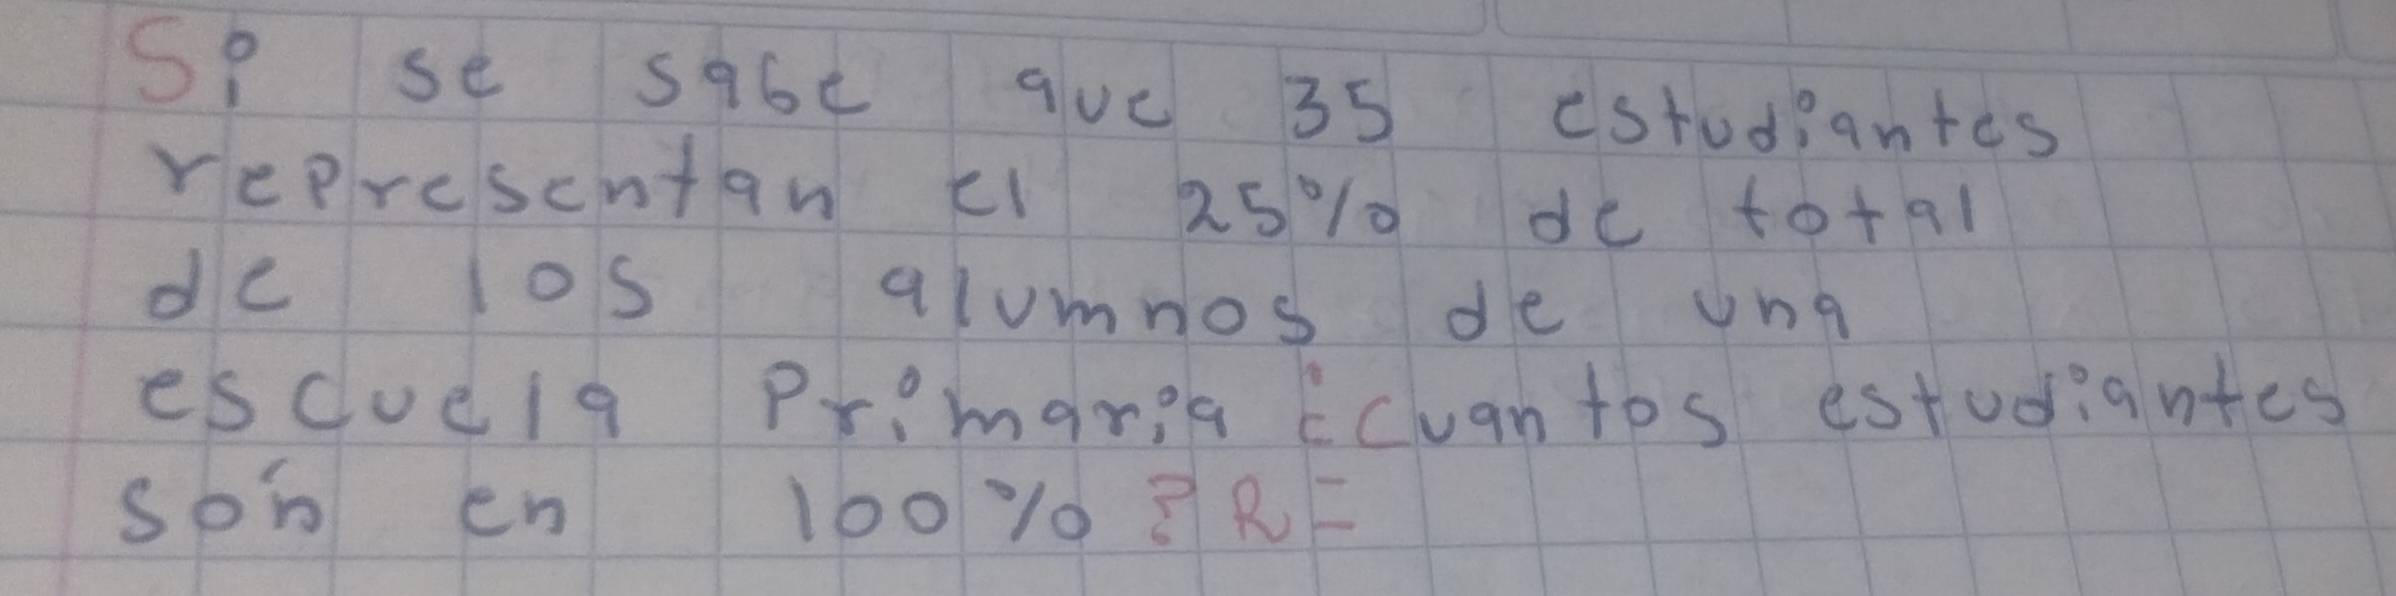 Si se sabe que 35 estudiantes
representan el 25% de total
de los alumnos de una
escuela Primaria ¿Cuantos estudiantes
són en 100%? R=